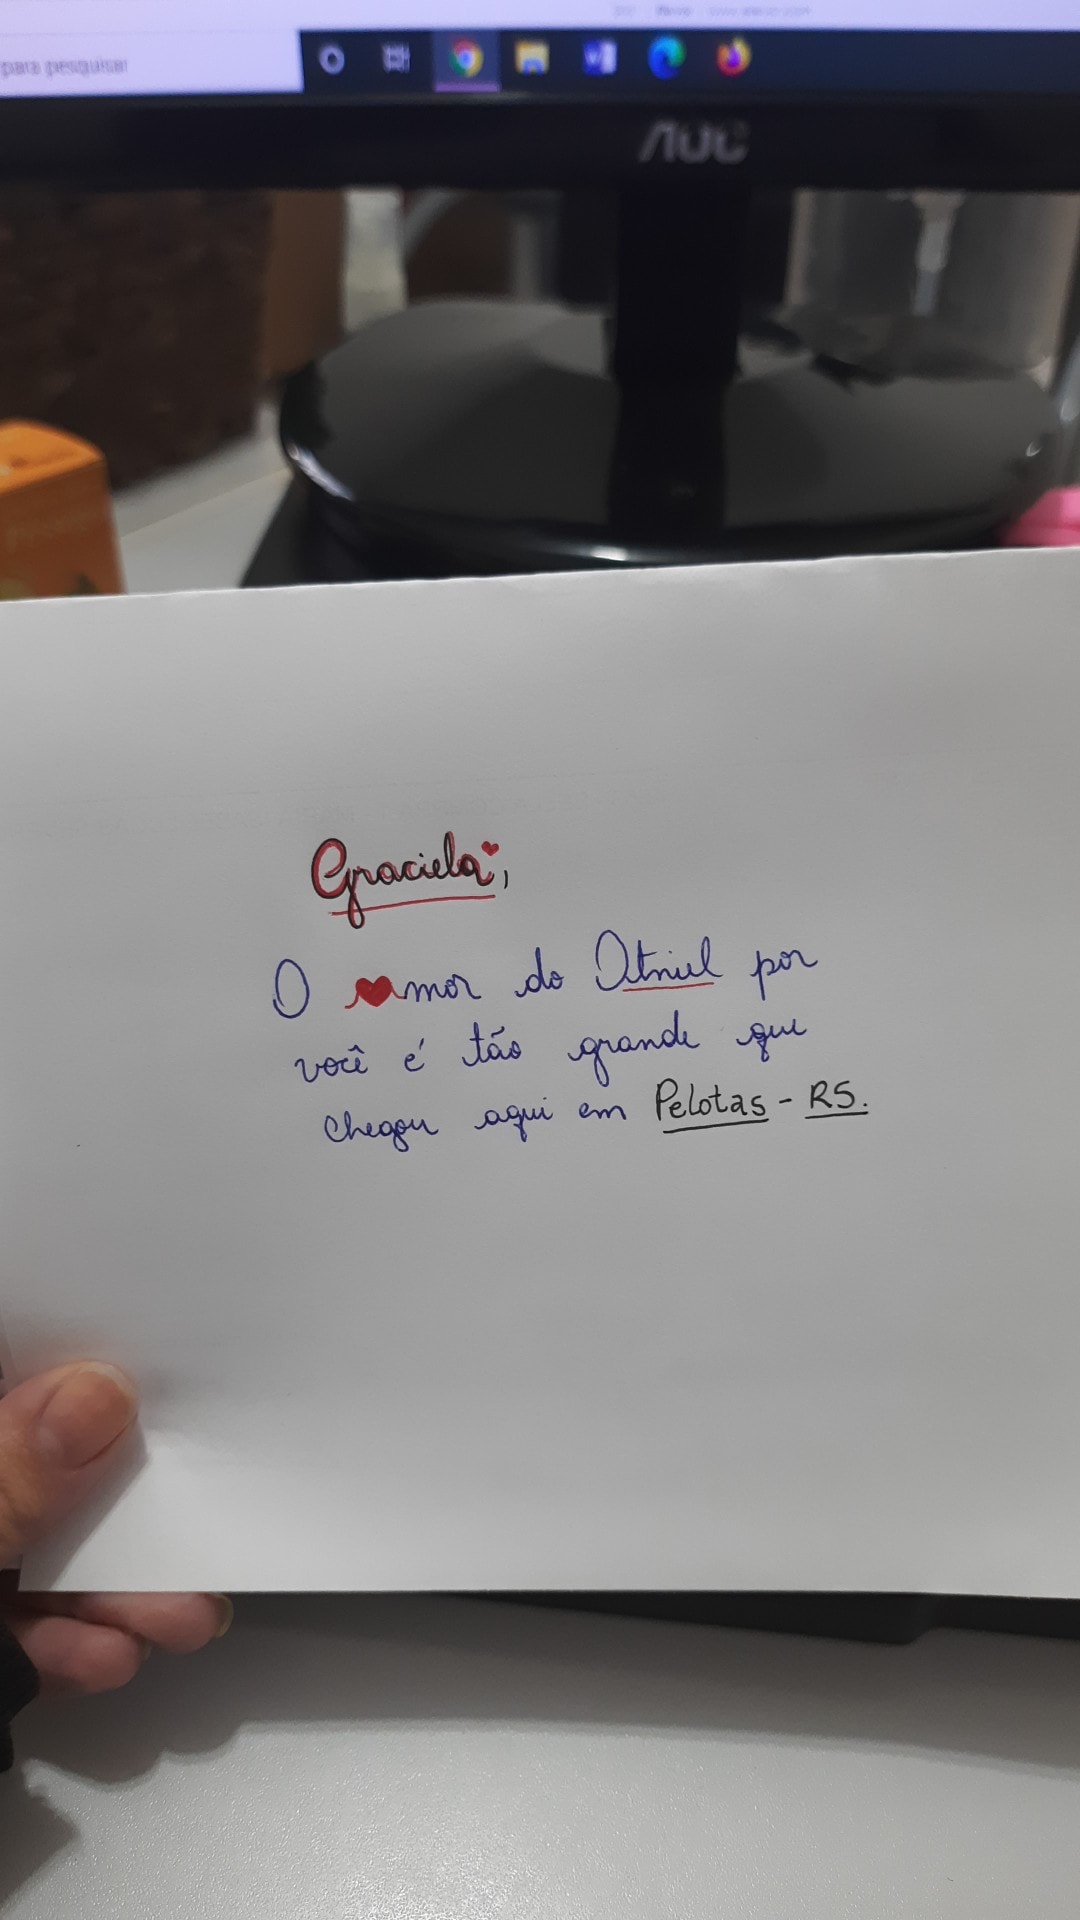 para pesquisar
AOC
Graciela,
O amor do Otniel por
você é tão grande que
chegou aqui em Pelotas - RS.